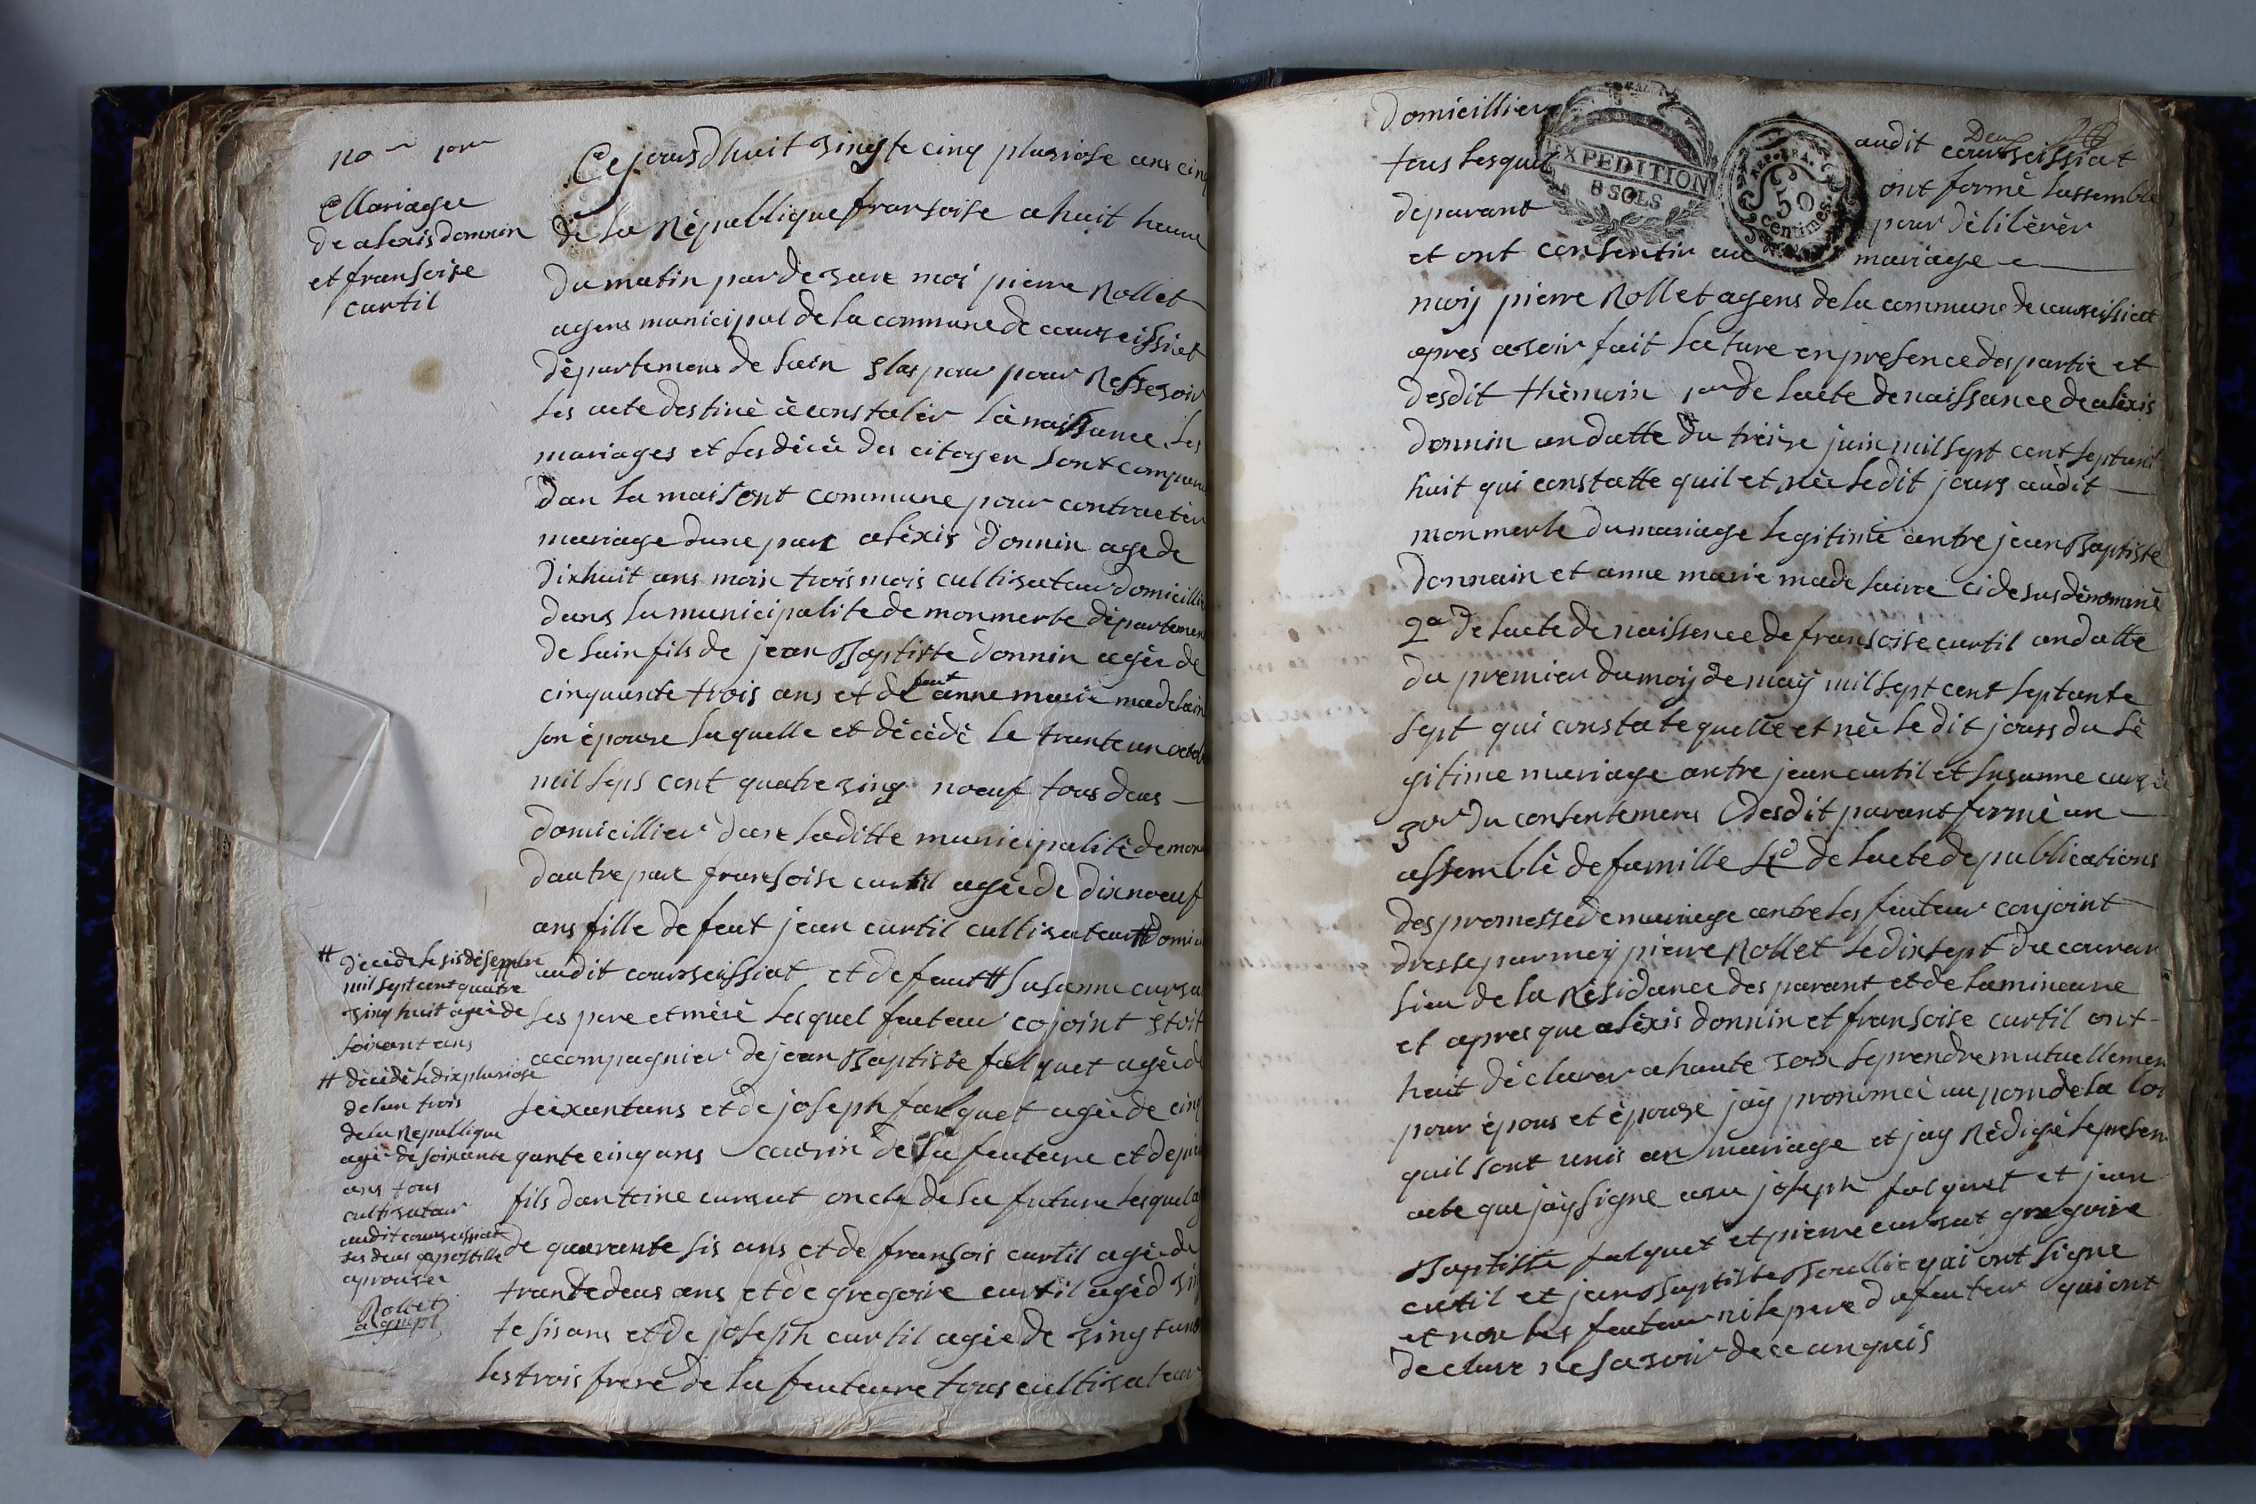 Mariage
de alexis donnin
et fransoise
curtil
Ce jours dhuit vingte cinq pluviose ans cinq
de la République fransoise a huit heure
du matin pardevant moi pierre Rollet
agens municipal de la commune de courseissiat
départemens de lain pour Ressevoir
les acte destiné a constatér la naissance les
mariages et les décè des citoyen sont comparu
dan la maisont commune pour contractér
mariage dune part aléxis donnin age de
dixhuit ans moin trois mois cultivateur domicillié
dans la municipalite de monmerle départemen
de lain fils de jean Baptiste donnin agée de
cinquante trois ans et de feut anne marie madelain
son épouse laquelle et décédé le trante un octob
mil seps cent quatre ving noeuf tous deus
domicillier dans laditte municipalité de mon
dautre part fransoise curtil agée de dix noeuf
ans fille de feut jean curtil cultivateur # domici
audit courseissiat et de feut # susanne cursa
ses pere et mére lesquel feuteur cojoint
acompagnier de jean Baptiste falquet agée de
seixantans et de joseph falquet agée de cinq
quante cinq ans cousin de la feuteure et de
fils dantoine cursat oncle de la future lesquel
de quarante sis ans et de fransois curtil agée de
trante deus ans et de gregoire curtil agéd ving
te sis ans et de joseph curtil agée de vingt ans
les trois frere de la feuteure tous cultivateur
# décédé le sis désembre
mil sept cent quatre
ving huit agée de
soixant ans
# décédé le dix pluviose
de lan trois
de la Republique
agée de soixante
ans tous
cultivateur
audit courseissiat
les deus apostille
aprouvée
Rollet
agent
domicillier audit courseissiat
tous lesquel ont formé lassemblé
de parant pour délibérér
et ont consentir au mariage
moij pierre Rollet agens de la commune de courseissiat
apres avoir fait lecture en presence des partie et
desdit thémoin de lacte de naissance de aléxis
donnin an datte du tréize juin mil sept cent septant
huit qui constatte quil et née ledit jours audit
monmerle du mariage legitime antre jean Baptiste
donnain et anne marie madelainne ci desus dénommé
2° de lacte de naissence de fransoise curtil an datte
du premier du moij de maij mil sept cent septante
sept qui constate quelle et née le dit jours du lé
gitime mariage antre jean curtil et susanne cursa
du consentemens desdit parant formé en
assemblé de famille 4° de lacte de publications
des promesse de mariage antre les feuteur conjoint
dresse par moij pierre Rollet le dix sept du couran
lieu de la Résidance des parant et de la mineure
et apres que aléxis donnin et fransoise curtil ont
hait déclarer a haute voix se prendre mutuellemen
pour épous et épouse jay prononcé au nom de la loi
quil sont unis an mariage et jay Rédigé le presen
acte que jay signe avec joseph falquet et jean
Baptiste falquet et pierre cursat gregoire
curtil et jean Baptiste qui ont signe
et non les feuteur ni le pere du feuteur qui ont
declare ne savoir de ce anquis
EXPEDITION
8 SOLS
REP. FRA.
50
Centimes